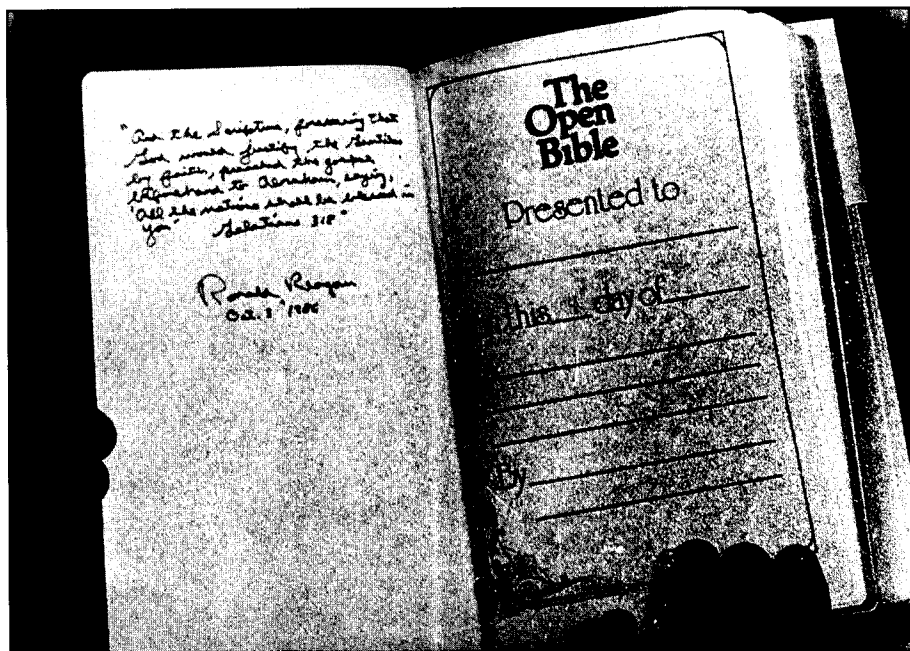 "And the Scripture, foreseeing that
God would justify the Gentiles
by faith, preached the gospel
beforehand to Abraham, saying,
'All the nations shall be blessed in
you' Galatians 3:8"
Ronald Reagan
Oct. 3 1986
The
Open
Bible
Presented to
this day of
By